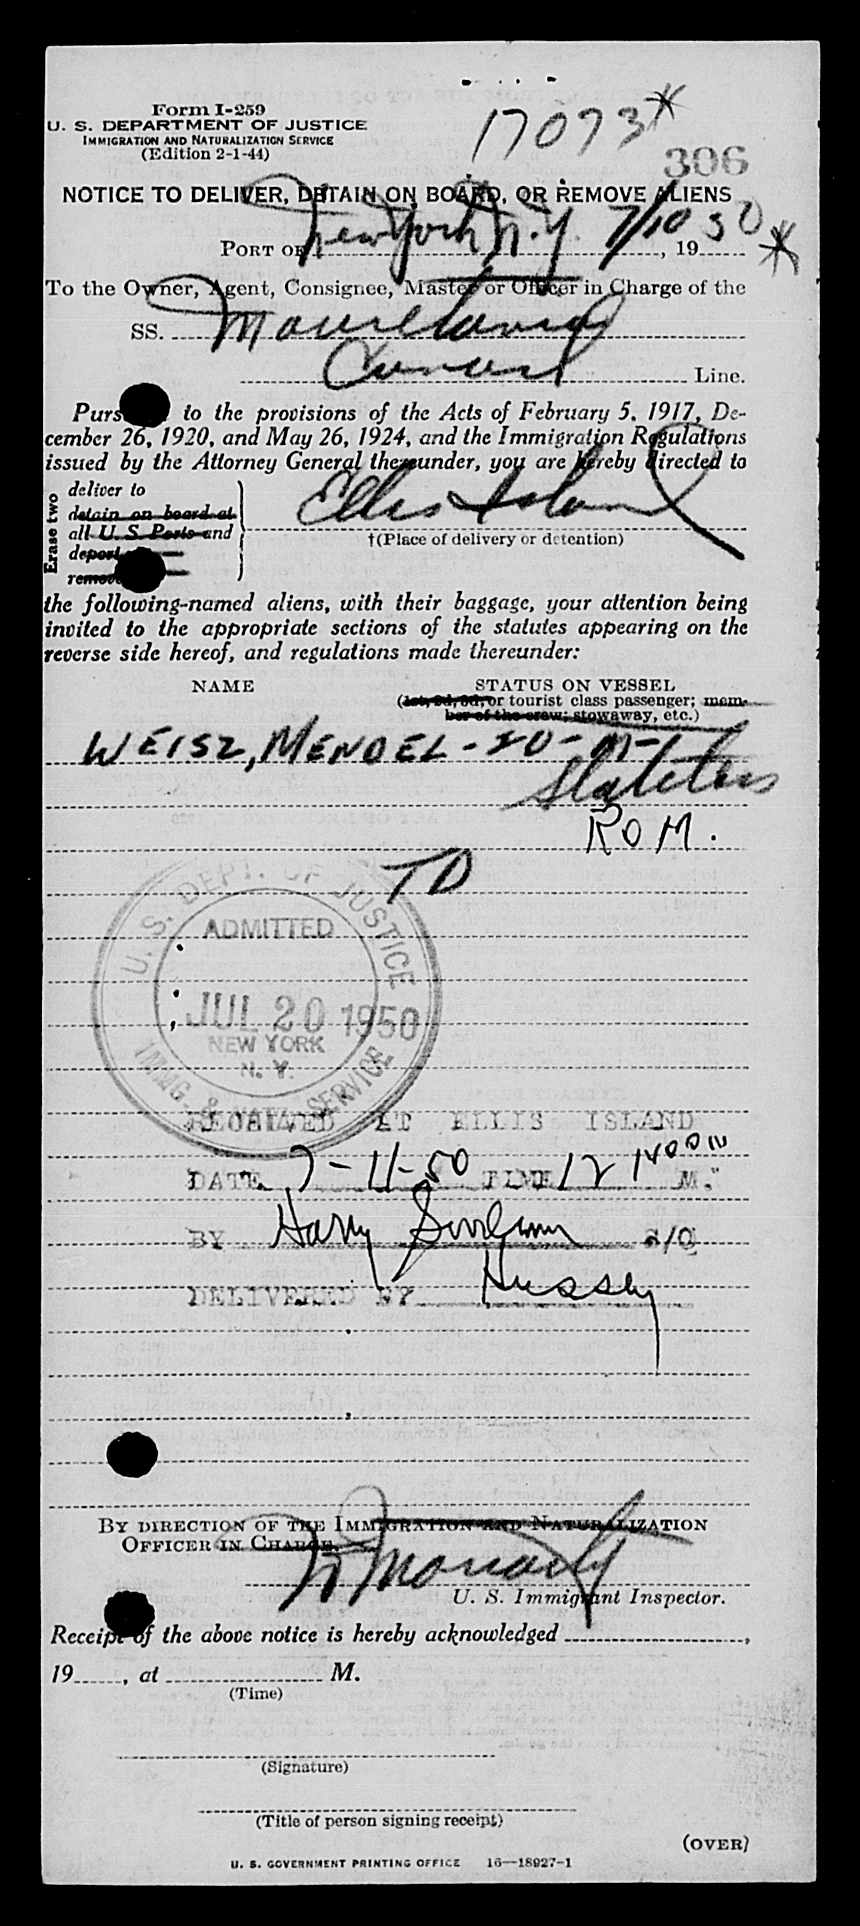 Form I-259
U. S. DEPARTMENT OF JUSTICE
IMMIGRATION AND NATURALIZATION SERVICE
(Edition 2-1-44)
17073*
306
NOTICE TO DELIVER, DETAIN ON BOARD, OR REMOVE ALIENS
PORT OF New York N.Y. 7/10, 1950
*
To the Owner, Agent, Consignee, Master or Officer in Charge of the
SS. Mauretania
Cunard Line.
Purs to the provisions of the Acts of February 5, 1917, De-
cember 26, 1920, and May 26, 1924, and the Immigration Regulations
issued by the Attorney General thereunder, you are hereby directed to
Erase two
deliver to
detain on board at
all U. S. Ports and
deport
remove
Ellis Island
†(Place of delivery or detention)
the following-named aliens, with their baggage, your attention being
invited to the appropriate sections of the statutes appearing on the
reverse side hereof, and regulations made thereunder:
NAME STATUS ON VESSEL
(1st, 2d, 3d, or tourist class passenger; mem-
ber of the crew; stowaway, etc.)
WEISZ, MENDEL - 20 - M -
Stateless
ROM.
TD
U. S. DEPT. OF JUSTICE
ADMITTED
JUL 20 1950
NEW YORK
N. Y.
IMMG. & NATZ. SERVICE
RECEIVED AT ELLIS ISLAND
DATE 7-11-50 TIME 12 M.
BY Harry S/O
DELIVERED BY Hussey
BY DIRECTION OF THE IMMIGRATION AND NATURALIZATION
OFFICER IN CHARGE.
U. S. Immigrant Inspector.
Receipt of the above notice is hereby acknowledged ,
19 , at M.
(Time)
(Signature)
(Title of person signing receipt)
(OVER)
U. S. GOVERNMENT PRINTING OFFICE 16—18927-1